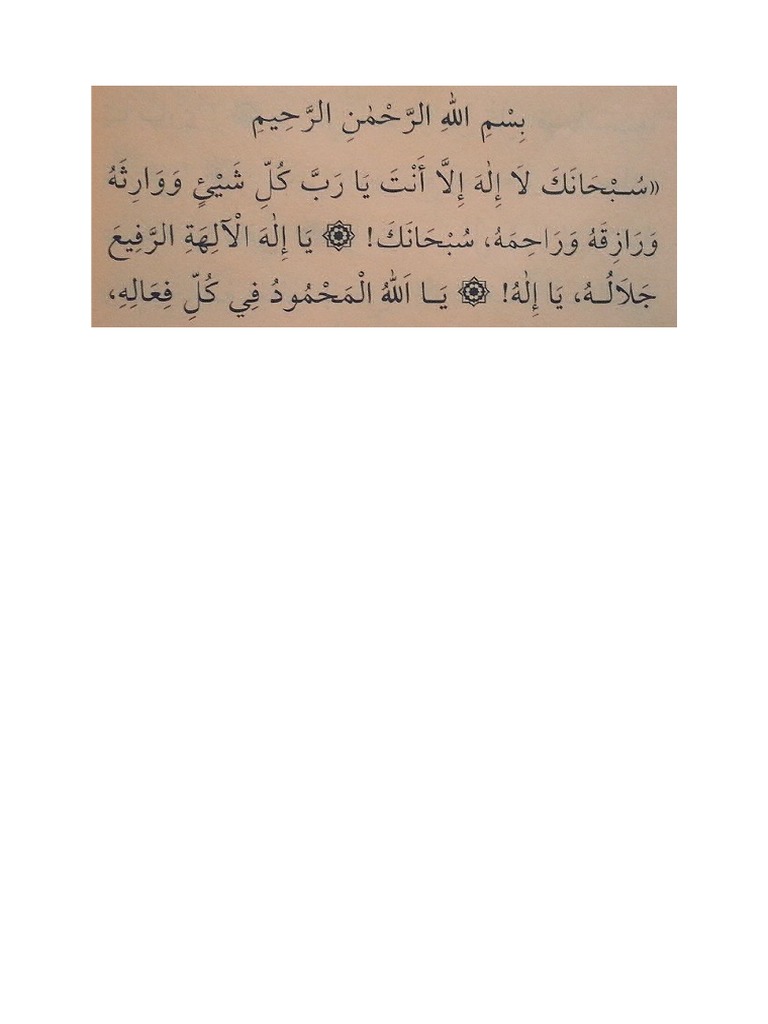 بِسْمِ اللهِ الرَّحْمٰنِ الرَّحِيمِ
«سُـبْحَانَكَ لَا إِلٰهَ إِلَّا أَنْتَ يَا رَبَّ كُلِّ شَيْئٍ وَوَارِثَهُ
وَرَازِقَهُ وَرَاحِمَهُ، سُبْحَانَكَ! ۞ يَا إِلٰهَ الْآلِهَةِ الرَّفِيعَ
جَلَالُـهُ، يَا إِلٰهُ! ۞ يَـا اَللهُ الْمَحْمُودُ فِي كُلِّ فِعَالِهِ،